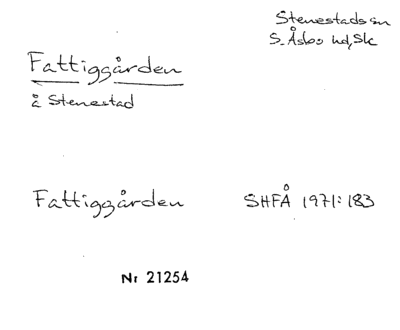 Stenestads sn
S. Åsbo hd, Sk
Fattiggården
å Stenestad
Fattiggården
SHFÅ 1971:183
Nr 21254